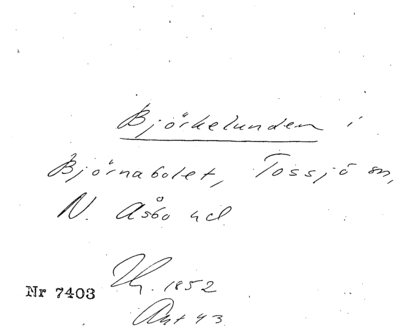 Björkelunden i
Björnabolet, Tossjö sn,
N. Åsbo hd
Th. 1852
Nr 7403
Ant 43.